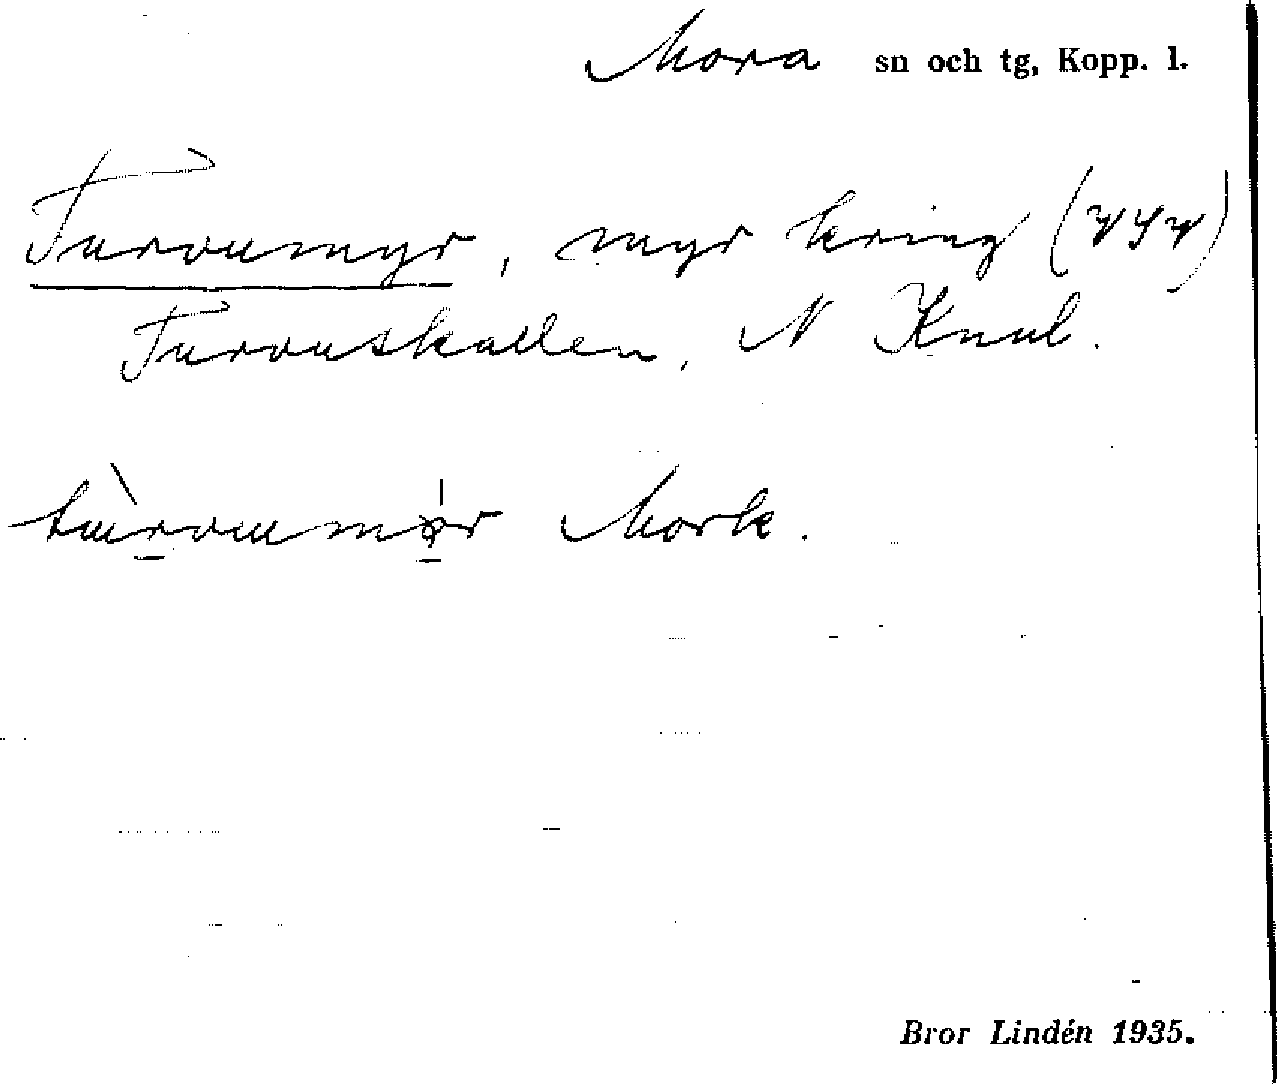 Mora sn och tg, Kopp. l.
Turvumyr, myr kring
Turvuskallen, N Knul.
Mork.
Bror Lindén 1935.